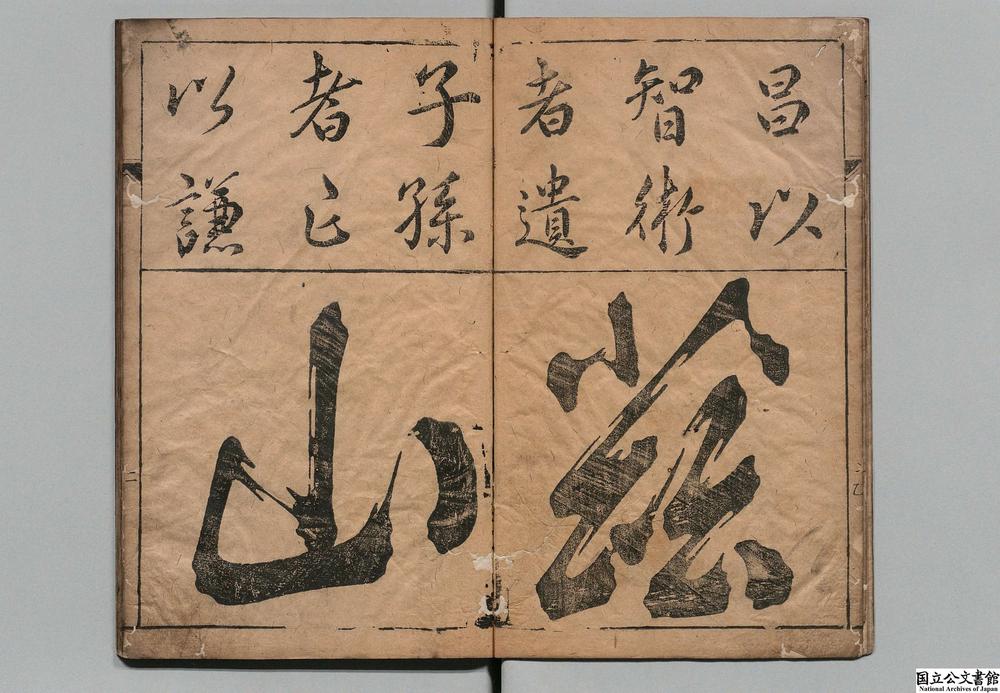 昌以
智術
者遺
子孫
者亡
以謙
茲
山
二
国立公文書館
National Archives of Japan